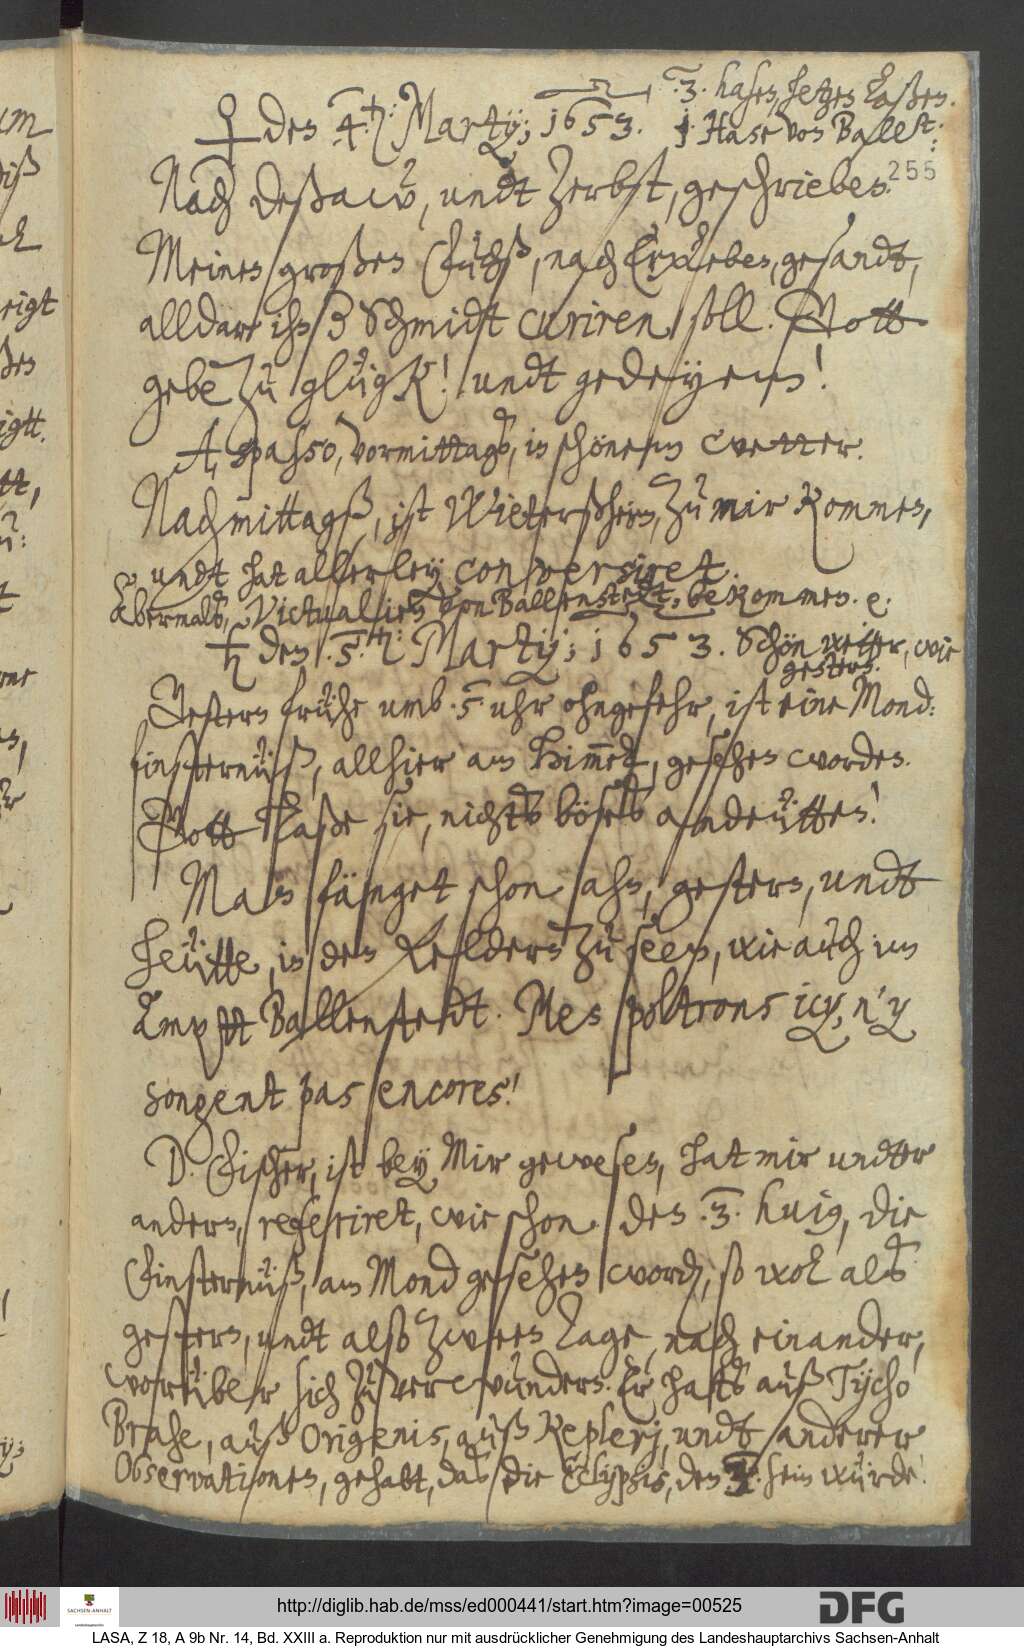 ♀ den 4.ten: Martzij; 1653. .3. hasen, hetzen laßen.
1. Hase von Ballst:
255
Nach Deßaw, undt Zerbst, geschrieben.
Meinen großen Fuchß, nach Erxleben, gesandt,
alldar ihn der Schmidt curiren soll. Gott
gebe zu glügk! undt gedeyen!
A spasso, vormittagß, in schönem wetter.
Nachmittagß, ist Wieterßheim, zu mir kommen,
undt hat allerley conversiret.
Abermalß, Victualien von Ballenstedt, bekommen. e.
♄ den .5.ten: Martzij; 1653. Schön wetter, wie
gestern.
Gestern frühe umb .5 uhr ohngefehr, ist eine Mond-
finsternüß, allhier am Himmel, gesehen worden.
Gott laße sie, nichtß böseß andeütten!
Man fänget schon ahn, gestern, undt
heütte, in den Feldern zu seen, wie auch im
Ampt Ballenstedt. Mes poltrons icy, n'y
songent pas encores!
D. Fischer, ist bey Mir gewesen, hat mir undter
andern, referiret, wie schon den .3. huius, die
Finsternüß, am Mond gesehen word(en), so wol alß
gestern, undt also zween Tage, nach einander,
worüber sich zu verwundern. Er hatß auß Tycho
Brahe, auß Origenis, auß Keplerj, undt anderer
Observationen, gehabt, daß die Eclypsis, den 3. sein würde!
http://diglib.hab.de/mss/ed000441/start.htm?image=00525
SACHSEN-ANHALT
DFG
LASA, Z 18, A 9b Nr. 14, Bd. XXIII a. Reproduktion nur mit ausdrücklicher Genehmigung des Landeshauptarchivs Sachsen-Anhalt